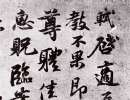 軾啓適
教不果即
尊體佳
惠貺臨